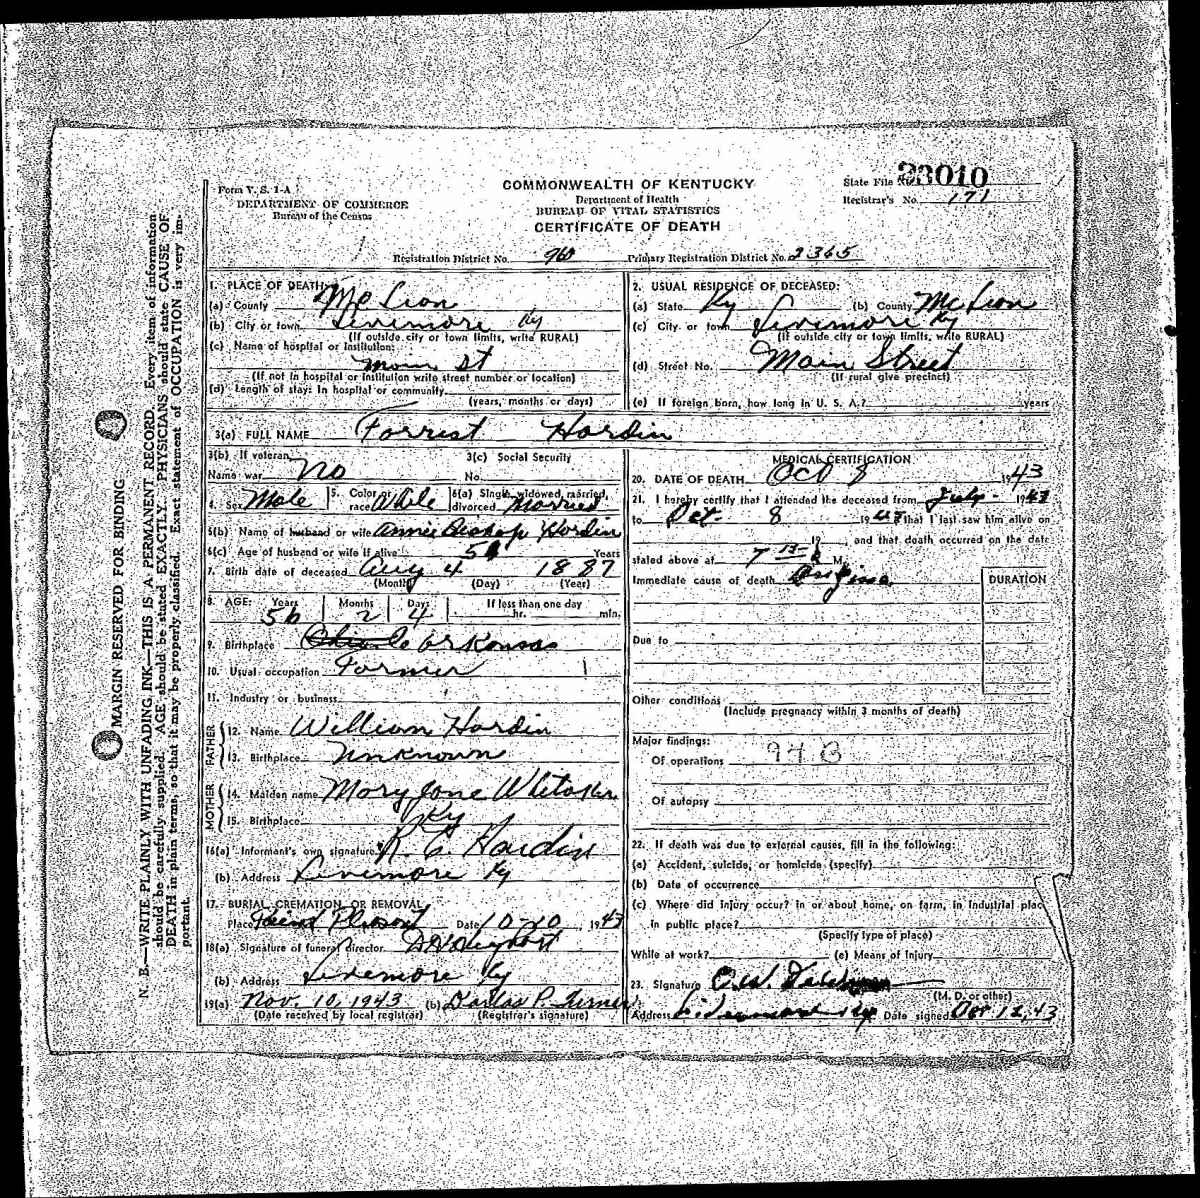 Form V. S. 1-A
DEPARTMENT OF COMMERCE
Bureau of the Census
COMMONWEALTH OF KENTUCKY
Department of Health
BUREAU OF VITAL STATISTICS
CERTIFICATE OF DEATH
State File No. 23010
Registrar's No. 171
Registration District No. 960 Primary Registration District No. 2365
1. PLACE OF DEATH:
(a) County Mc Lean
(b) City or town Livermore Ky
(If outside city or town limits, write RURAL)
(c) Name of hospital or institution:
Main St
(If not in hospital or institution write street number or location)
(d) Length of stay: In hospital or community
(years, months or days)
2. USUAL RESIDENCE OF DECEASED:
(a) State Ky (b) County McLean
(c) City or town Livermore Ky
(If outside city or town limits, write RURAL)
(d) Street No. Main Street
(If rural give precinct)
(e) If foreign born, how long in U. S. A.? years
3(a) FULL NAME Forrest Hardin
3(b) If veteran,
Name war No
3(c) Social Security
No.
4. Sex Male 5. Color or race White 6(a) Single, widowed, married, divorced Married
6(b) Name of husband or wife Annie Bishop Hardin
6(c) Age of husband or wife if alive 51 Years
7. Birth date of deceased Aug 4 1887
(Month) (Day) (Year)
8. AGE: Years 56 Months 2 Days 4 If less than one day hr. min.
9. Birthplace Arkansas
10. Usual occupation Farmer
11. Industry or business
FATHER
12. Name William Hardin
13. Birthplace Unknown
MOTHER
14. Maiden name Mary Jane Whitaker
15. Birthplace Ky
16(a) Informant's own signature R. C. Hardin
(b) Address Livermore Ky
17. BURIAL, CREMATION, OR REMOVAL
Place Pleasant Date 10-10 1943
18(a) Signature of funeral director
(b) Address Livermore Ky
19(a) Nov. 10, 1943 (b) Dallas P. Turner
(Date received by local registrar) (Registrar's signature)
MEDICAL CERTIFICATION
20. DATE OF DEATH Oct 8 1943
21. I hereby certify that I attended the deceased from July 1943
to Oct. 8 1943 that I last saw him alive on
19 , and that death occurred on the date
stated above at 7 15 M.
Immediate cause of death Angina
DURATION
Due to
Other conditions
(Include pregnancy within 3 months of death)
Major findings:
Of operations 94 B
Of autopsy
22. If death was due to external causes, fill in the following:
(a) Accident, suicide, or homicide (specify)
(b) Date of occurrence
(c) Where did injury occur? In or about home, on farm, in industrial plac
in public place?
(Specify type of place)
While at work? (e) Means of Injury
23. Signature O.W.
(M. D. or other)
Address Livermore Ky Date signed Oct 12, 43
MARGIN RESERVED FOR BINDING
N. B.—WRITE PLAINLY WITH UNFADING INK—THIS IS A PERMANENT RECORD. Every item of information
should be carefully supplied. AGE should be stated EXACTLY. PHYSICIANS should state CAUSE OF
DEATH in plain terms, so that it may be properly classified. Exact statement of OCCUPATION is very im-
portant.